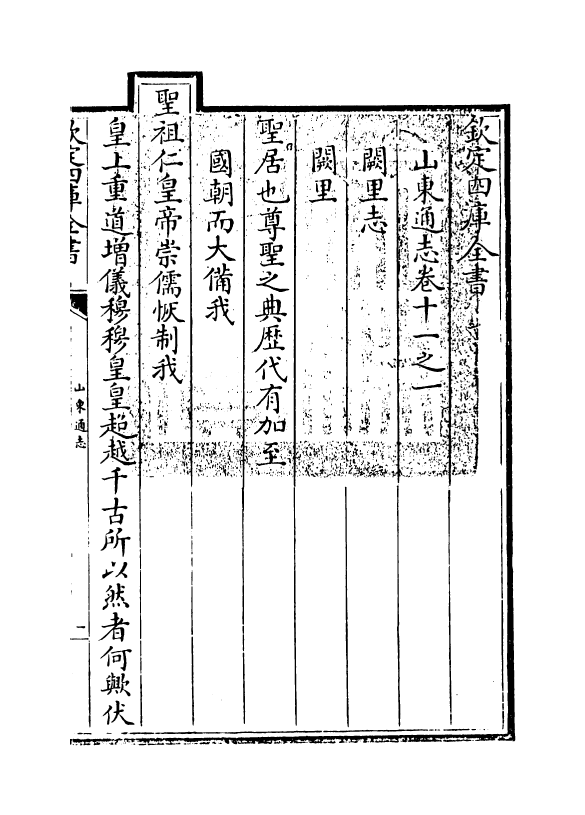 欽定四庫全書
山東通志卷十一之一
闕里志
闕里
聖居也尊聖之典歴代有加至
國朝而大備我
聖祖仁皇帝崇儒恢制我
皇上重道増儀穆穆皇皇超越千古所以然者何歟伏
欽定四庫全書
山東通志